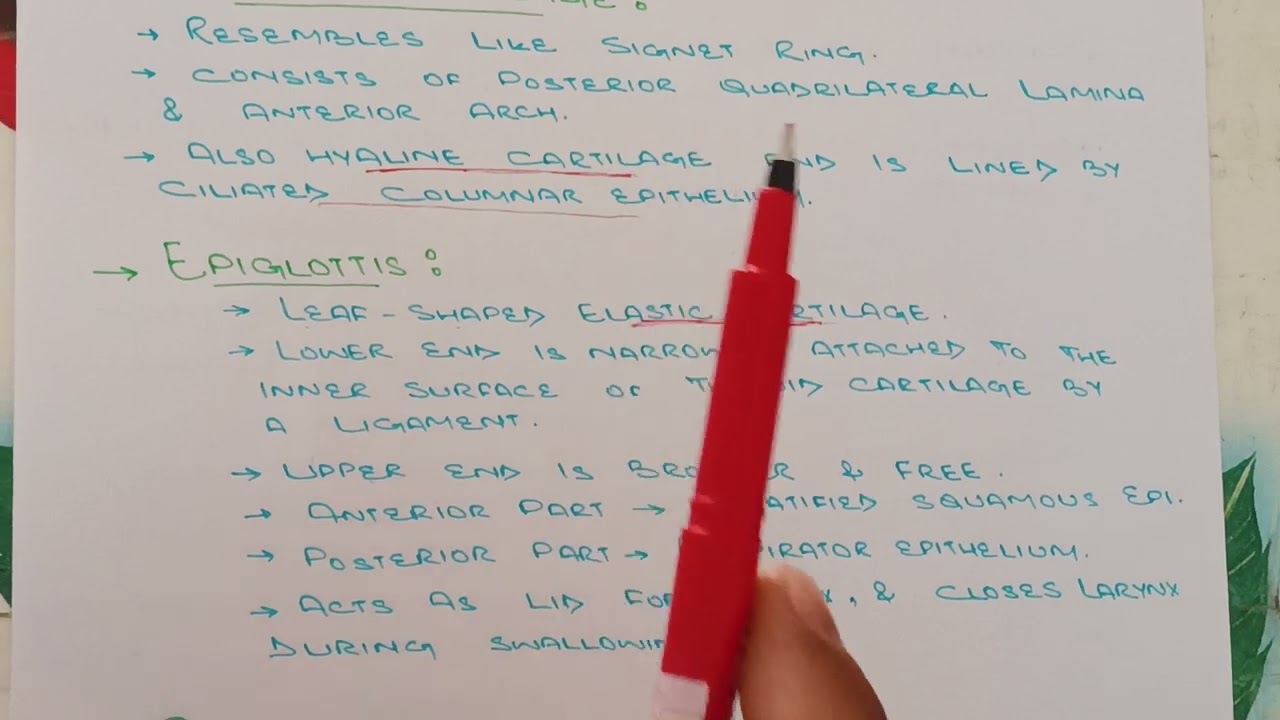 → RESEMBLES LIKE SIGNET RING.
→ CONSISTS OF POSTERIOR QUADRILATERAL LAMINA
& ANTERIOR ARCH.
→ ALSO HYALINE CARTILAGE IS LINED BY
CILIATED COLUMNAR EPITHELIUM.
→ EPIGLOTTIS :
→ LEAF-SHAPED ELASTIC CARTILAGE.
→ LOWER END IS ATTACHED TO THE
INNER SURFACE OF CARTILAGE BY
A LIGAMENT.
→ UPPER END IS & FREE.
→ ANTERIOR PART → SQUAMOUS EPI.
→ POSTERIOR PART → EPITHELIUM.
→ ACTS AS LID , & CLOSES LARYNX
DURING